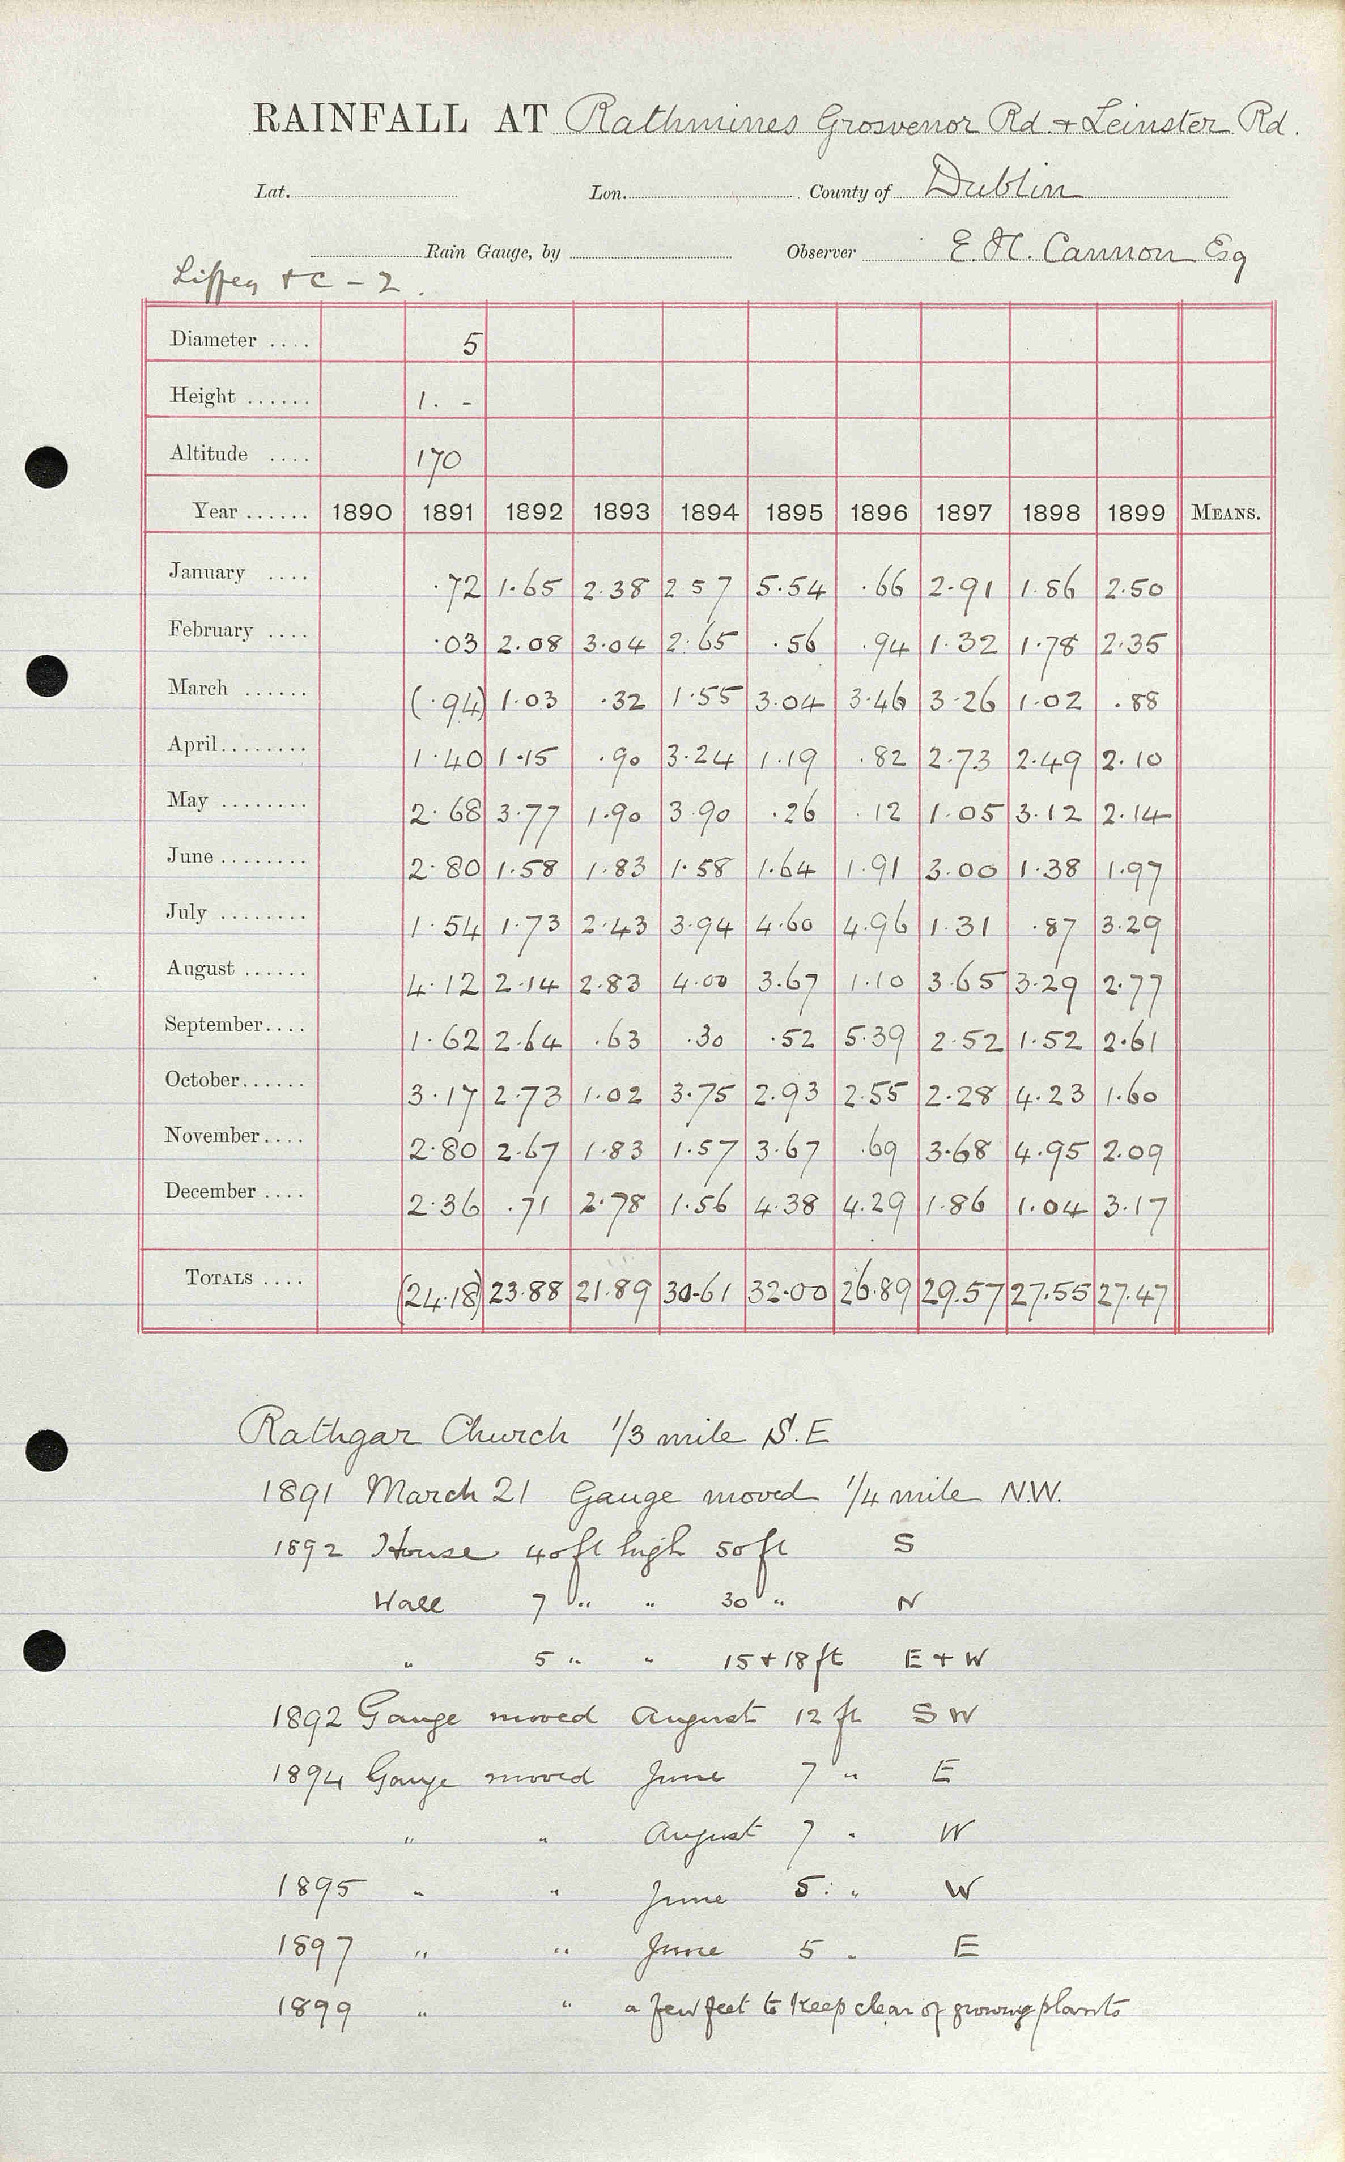 RAINFALL AT Rathmines Grosvenor Rd + Leinster Rd.
Lat. Lon. County of Dublin
Rain Gauge, by Observer E. H. Cannon Esq
Liffey + C - 2.
Diameter .... 5
Height ...... 1. -
Altitude .... 170
Year ...... 1890 1891 1892 1893 1894 1895 1896 1897 1898 1899 MEANS.
January .... .72 1.65 2.38 2 57 5.54 .66 2.91 1.86 2.50
February .... .03 2.08 3.04 2.65 .56 .94 1.32 1.78 2.35
March ...... (.94) 1.03 .32 1.55 3.04 3.46 3.26 1.02 .88
April........ 1.40 1.15 .90 3.24 1.19 .82 2.73 2.49 2.10
May ........ 2.68 3.77 1.90 3.90 .26 .12 1.05 3.12 2.14
June ........ 2.80 1.58 1.83 1.58 1.64 1.91 3.00 1.38 1.97
July ........ 1.54 1.73 2.43 3.94 4.60 4.96 1.31 .87 3.29
August ...... 4.12 2.14 2.83 4.00 3.67 1.10 3.65 3.29 2.77
September.... 1.62 2.64 .63 .30 .52 5.39 2.52 1.52 2.61
October...... 3.17 2.73 1.02 3.75 2.93 2.55 2.28 4.23 1.60
November.... 2.80 2.67 1.83 1.57 3.67 .69 3.68 4.95 2.09
December .... 2.36 .71 2.78 1.56 4.38 4.29 1.86 1.04 3.17
TOTALS .... (24.18) 23.88 21.89 30.61 32.00 26.89 29.57 27.55 27.47
Rathgar Church 1/3 mile S.E
1891 March 21 Gauge moved 1/4 mile N.W.
1892 House 40 ft high 50 ft S
Wall 7 " " 30 " N
" 5 " " 15 + 18 ft E + W
1892 Gauge moved August 12 ft S W
1894 Gauge moved June 7 " E
" " August 7 " W
1895 " " June 5 " W
1897 " " June 5 " E
1899 " " a few feet to keep clear of growing plants